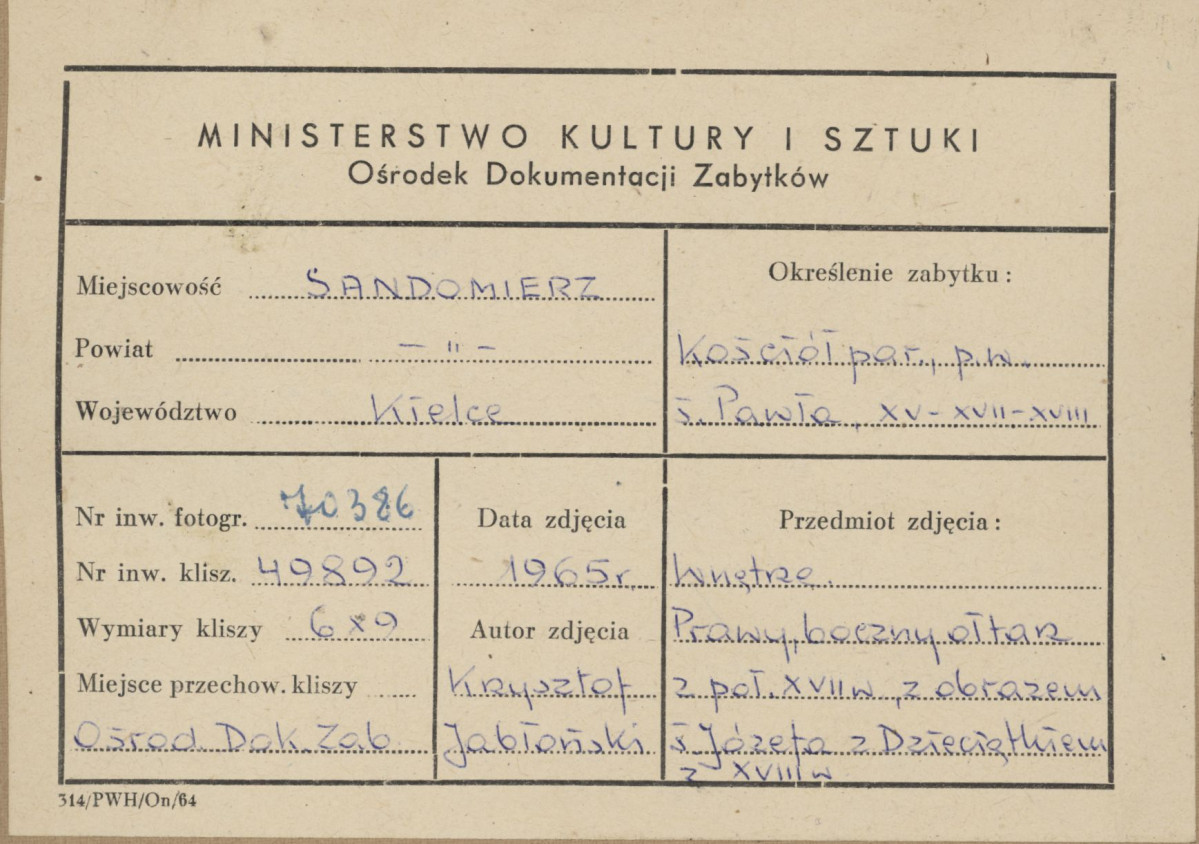 MINISTERSTWO KULTURY I SZTUKI
Ośrodek Dokumentacji Zabytków
Miejscowość SANDOMIERZ
Powiat – " –
Województwo Kielce
Określenie zabytku:
Kościół par., p.w.
ś. Pawła, XV-XVII-XVIII
Nr inw. fotogr. 70386
Nr inw. klisz. 49892
Wymiary kliszy 6x9
Miejsce przechow. kliszy
Ośrod. Dok. Zab.
Data zdjęcia
1965r.
Autor zdjęcia
Krzysztof
Jabłoński
Przedmiot zdjęcia:
Wnętrze.
Prawy, boczny ołtarz
z poł. XVII w, z obrazem
ś. Józefa z Dzieciątkiem
z XVIII w
314/PWH/On/64